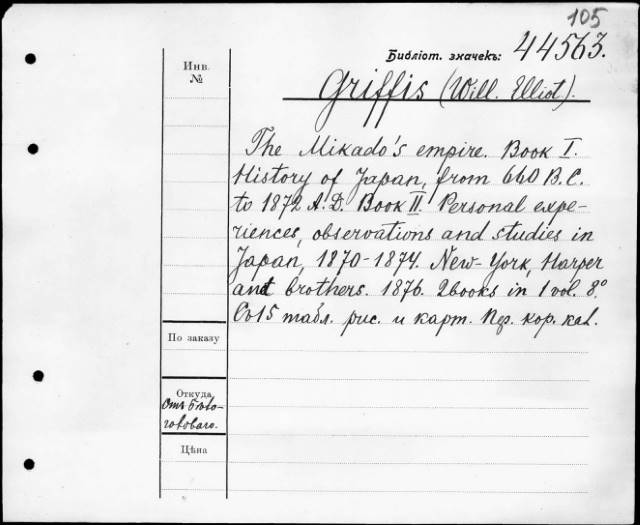 105
Библіот. значекъ: 44563.
Инв.
№
Griffis (Will. Elliot).
The Mikado's empire. Book I.
History of Japan, from 660 B.C.
to 1872 A.D. Book II. Personal expe-
riences, observations and studies in
Japan, 1870-1874. New-York, Harper
and brothers. 1876. 2 books in 1 vol. 8°
Съ 15 табл. рис. и карт. кор.
По заказу
Откуда
Отъ
Цѣна